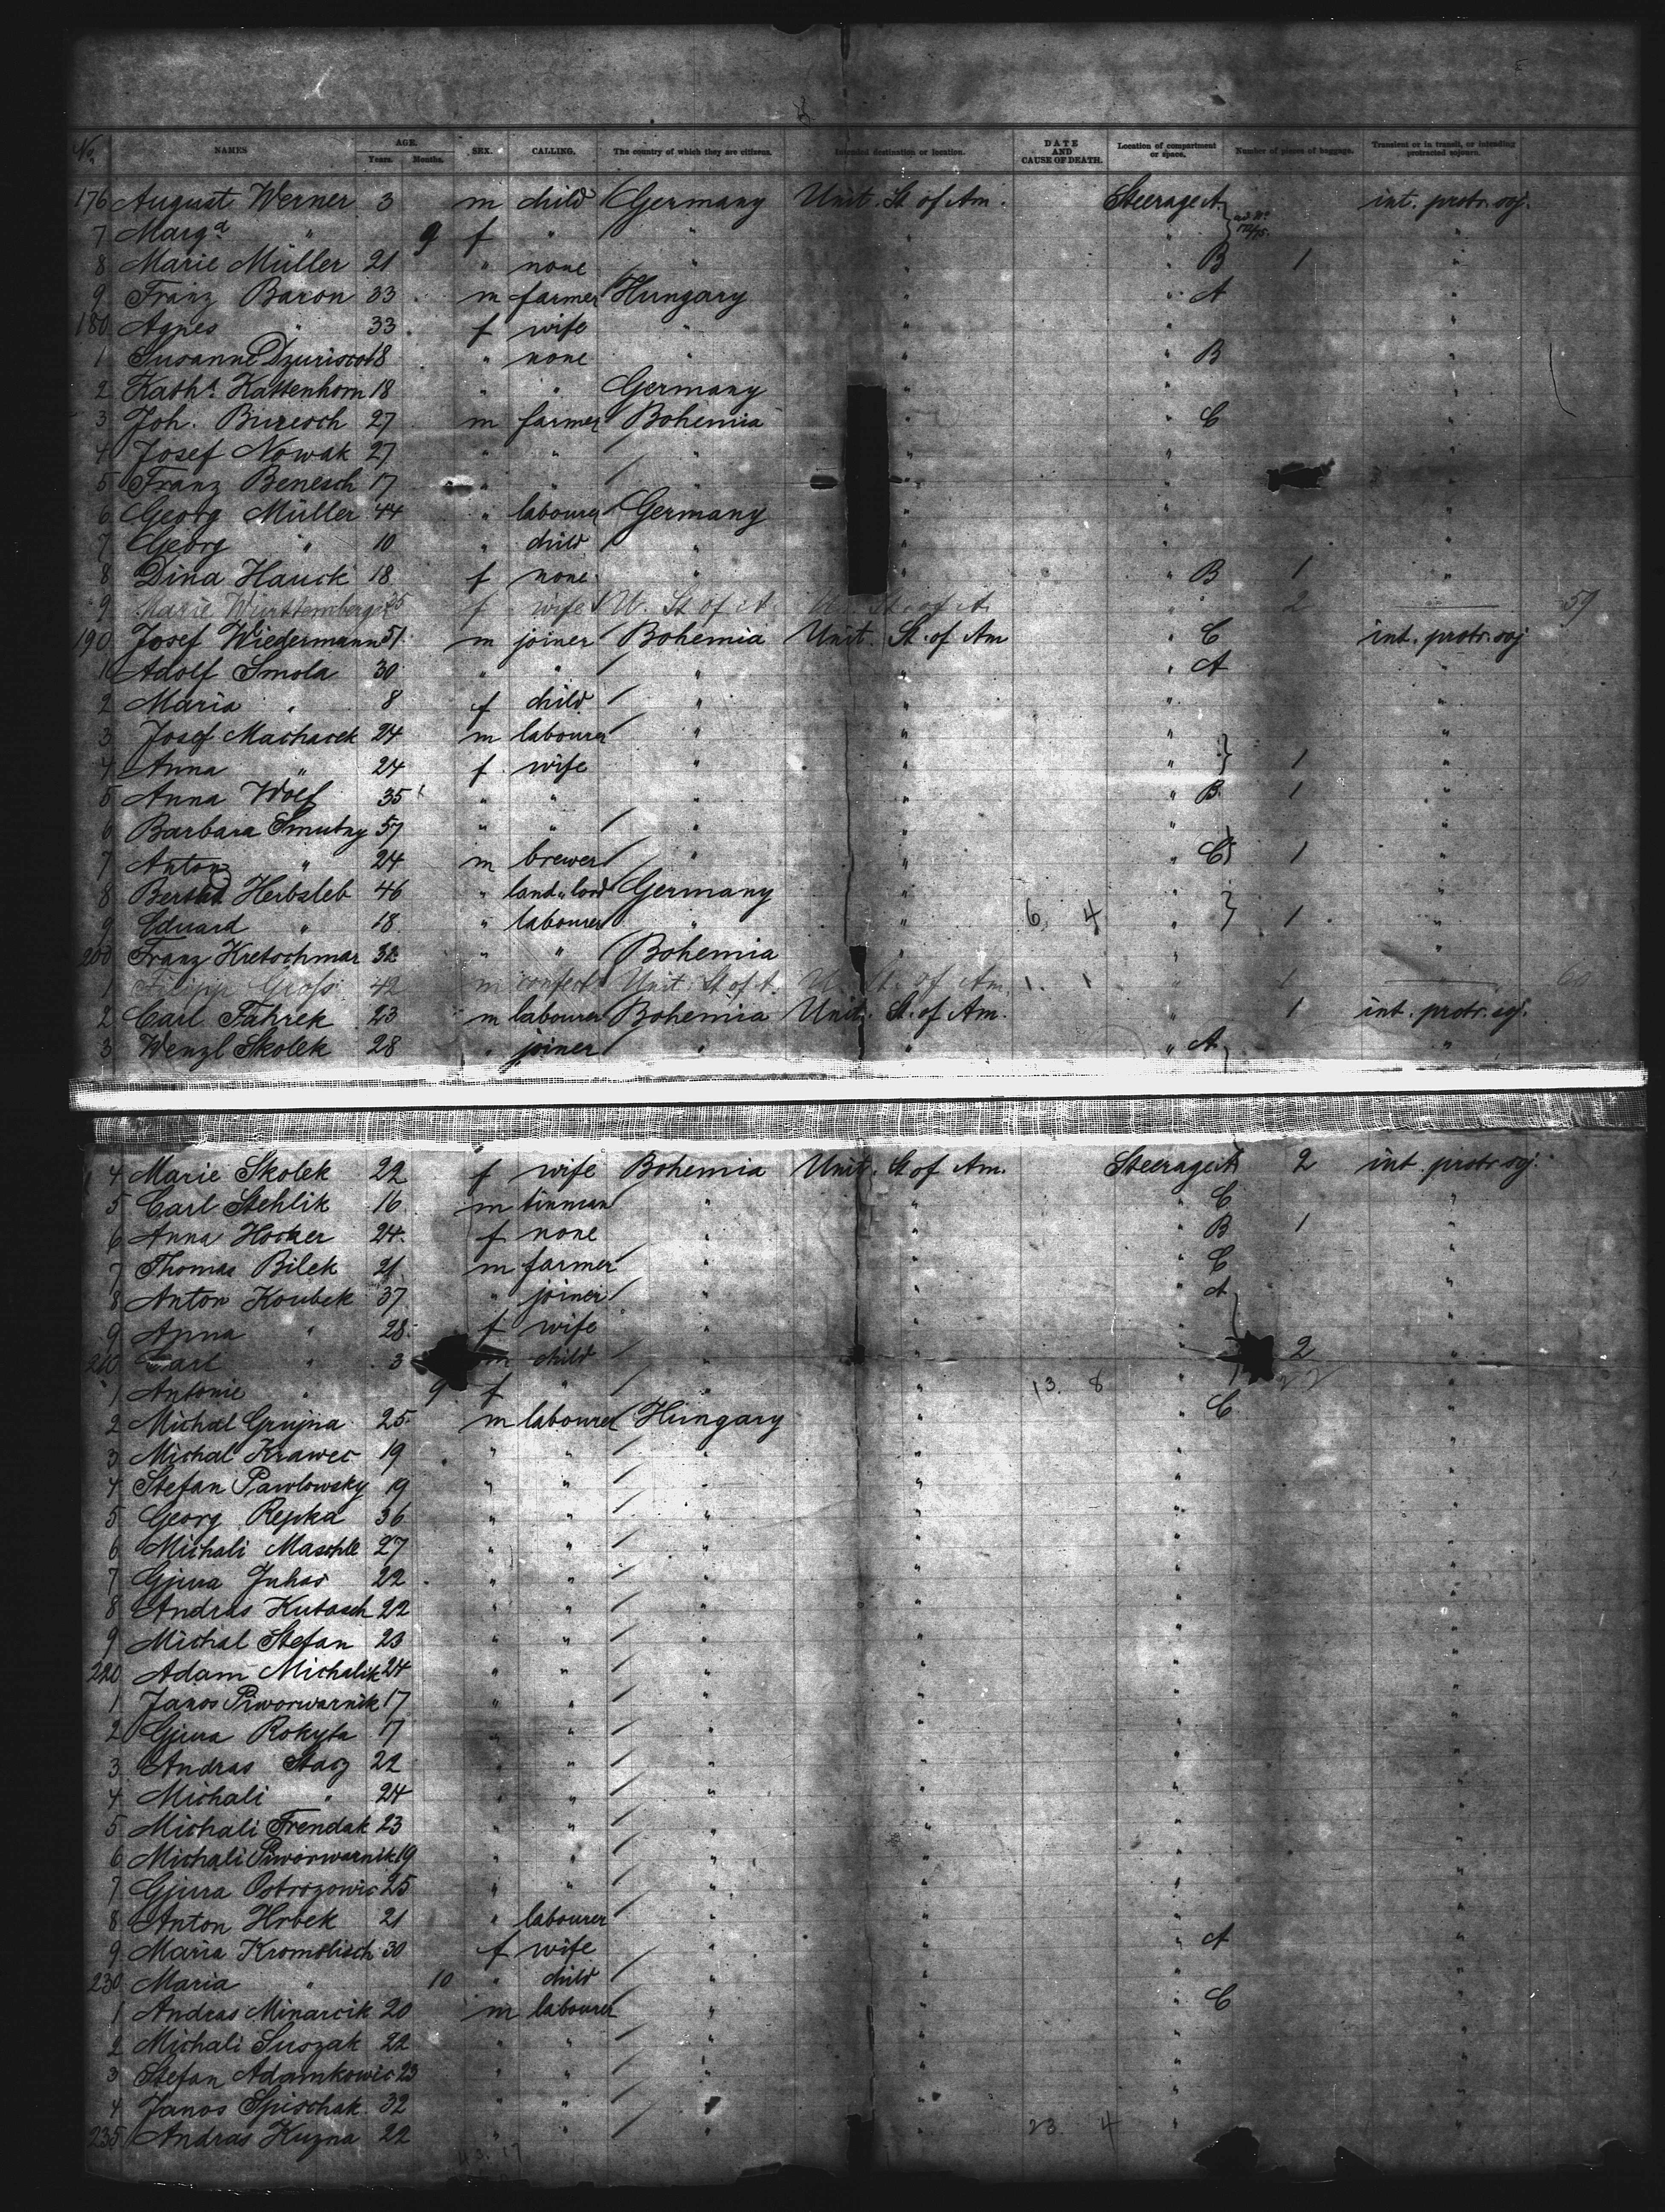 No. NAMES AGE. Years. Months. SEX. CALLING. The country of which they are citizens. Intended destination or location. DATE AND CAUSE OF DEATH. Location of compartment or space. Number of pieces of baggage. Transient or in transit, or intending protracted sojourn.
176 August Werner 3 m child Germany Unit. St. of Am. Steerage A int. protr. soj.
7 Marg.a " 9 f " " " " "
8 Marie Müller 21 " none " " " B 1 "
9 Franz Baron 33 m farmer Hungary " " A "
180 Agnes " 33 f wife " " " "
1 Susanne 18 " none " " " B "
2 Kath.a Kattenhorn 18 " " Germany " " "
3 Joh. Buresch 27 m farmer Bohemia " " C "
4 Josef Nowak 27 " " " " " "
5 Franz Benesch 17 " " " " " "
6 Georg Müller 44 " labourer Germany " " "
7 Georg " 10 " child " " " "
8 Dina Hauck 18 f none " " " B 1 "
9 Marie 25 f wife U. St. of A. U. St. of A. " " 2 — 59
190 Josef Wiedermann 51 m joiner Bohemia Unit. St. of Am " C int. protr. soj
1 Adolf Smola 30 " " " " " A "
2 Maria " 8 f child " " " "
3 Josef Machacek 24 m labourer " " " "
4 Anna " 24 f wife " " " 1 "
5 Anna Wolf 35 " " " " " B 1 "
6 Barbara Smutny 57 " " " " " "
7 Anton " 24 m brewer " " " C 1 "
8 Herbsleb 46 " land-lord Germany " " "
9 Eduard " 18 " labourer " " 6. 4 " 1 "
200 Franz Kretschmar 32 " " Bohemia " " "
1 Filipp Groß 42 m confect Unit. St. of A. U. St. of Am. 1. 1 " 1 — 60
2 Carl Fahrek 23 m labourer Bohemia Unit. St. of Am. " 1 int. protr. soj.
3 Wenzl Skolek 28 " joiner " " " A "
4 Marie Skolek 22 f wife Bohemia Unit. St. of Am. Steerage A 2 int. protr. soj.
5 Carl Stehlik 16 m tinman " " " C "
6 Anna Hocker 24 f none " " " B 1 "
7 Thomas Bilek 21 m farmer " " " C
8 Anton Koubek 37 " joiner " " " A "
9 Anna " 28 f wife " " " "
210 Carl " 3 m child " " " 2 "
1 Antonie " 9 f " " " 13. 8 " "
2 Michal Grujna 25 m labourer Hungary " " C "
3 Michal Krawec 19 " " " " " "
4 Stefan Pawlowsky 19 " " " " " "
5 Georg Repka 36 " " " " " "
6 Michali Maschle 27 " " " " " "
7 Gjura Juhas 22 " " " " " "
8 Andras Kutasch 22 " " " " " "
9 Michal Stefan 23 " " " " " "
220 Adam Michalik 24 " " " " " "
1 Janos Piworwarnik 17 " " " " " "
2 Gjura Rokyta 17 " " " " " "
3 Andras Stacz 22 " " " " "
4 Michali " 24 " " " " "
5 Michali Frendak 23 " " " " " "
6 Michali Piworwarnik 19 " " " " " "
7 Gjura Ostrozowic 25 " " " " " "
8 Anton Hrbek 21 " labourer " " " "
9 Maria Kromolisch 30 f wife " " " A "
230 Maria " 10 " child " " " "
1 Andras Minarcik 20 m labourer " " " C "
2 Michali Suszak 22 " " " " " "
3 Stefan Adamkowic 23 " " " " " "
4 Janos Spischak 32 " " " " " "
235 Andras Kuzna 22 " " " " 23. 4 " "